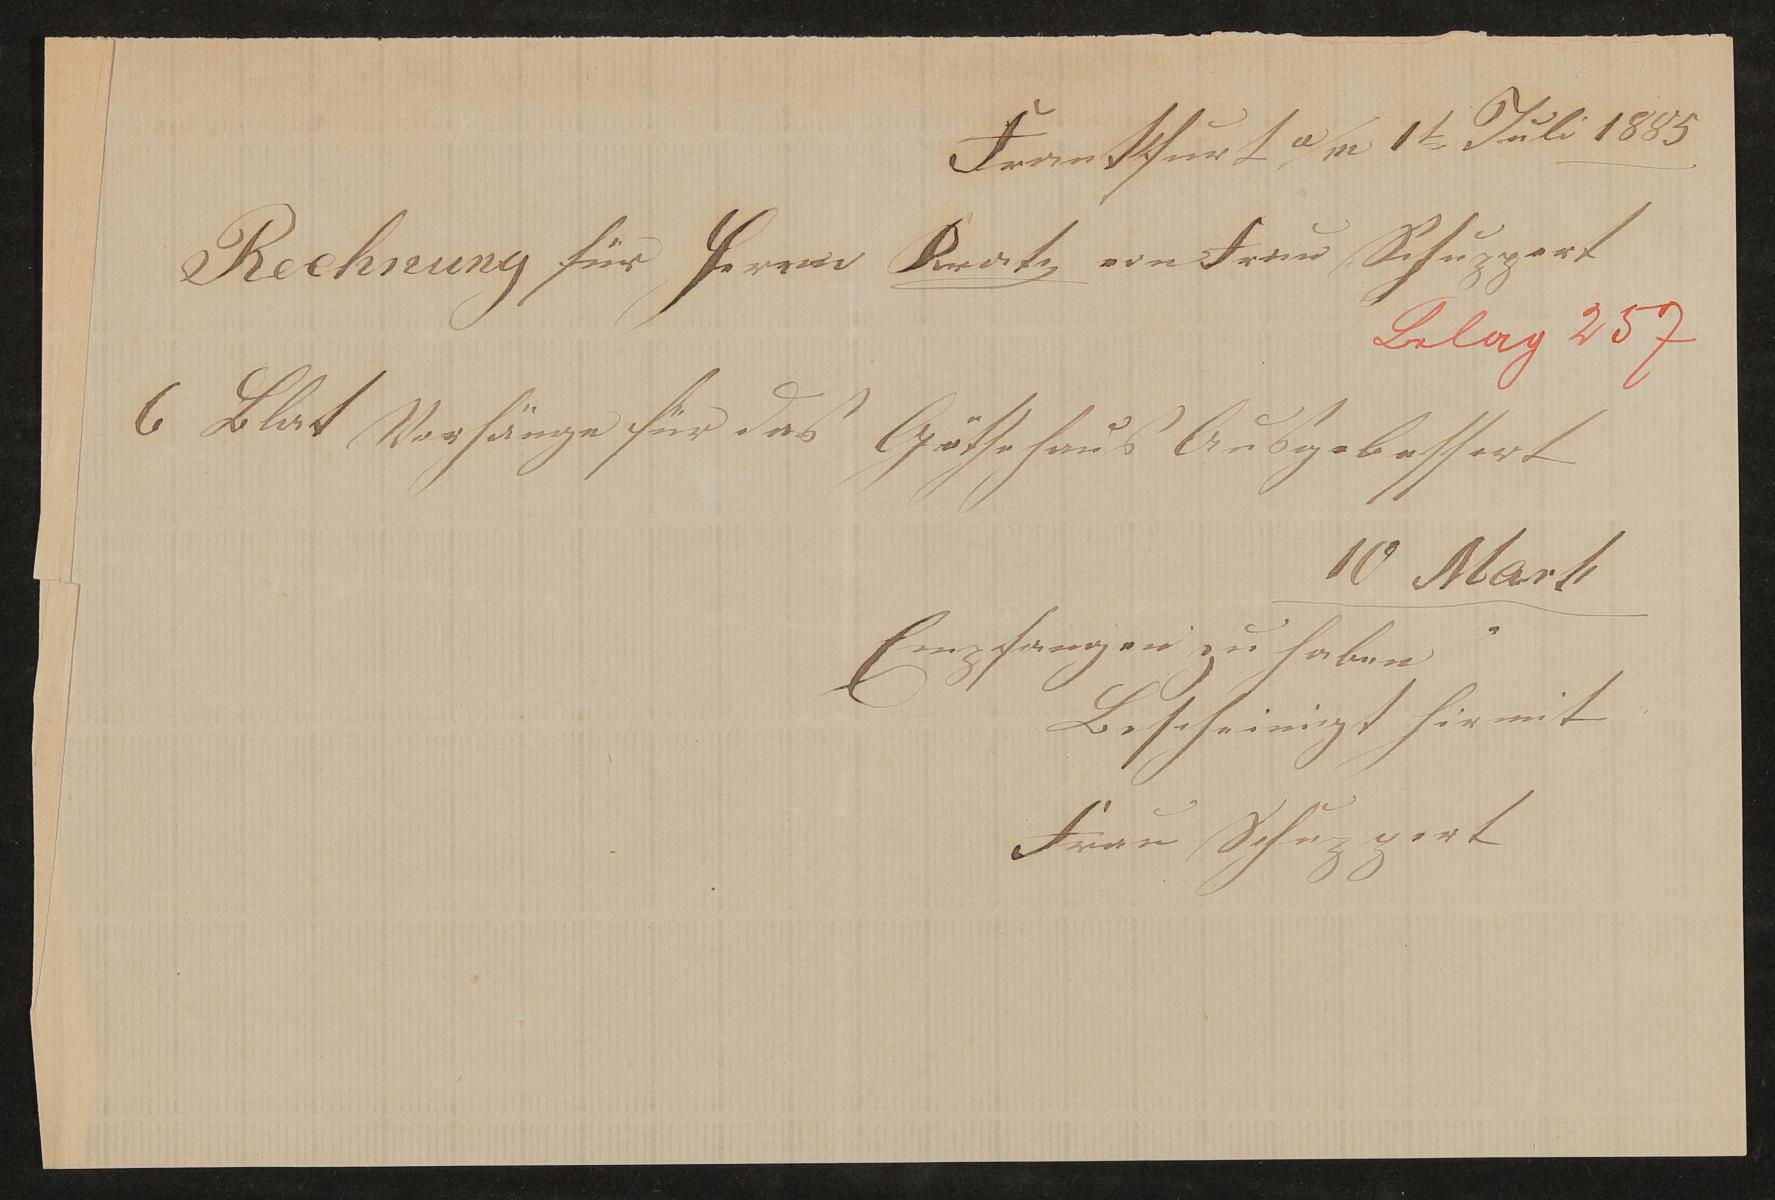 Frankfurt a/m 1t Juli 1885
Rechnung für Herrn Kratz von Frau Schuppert
Belag 257
6 Blat Vorhänge für das Göthehaus Ausgebessert
10 Mark
Empfangen zu haben
Bescheinigt hirmit
Frau Schuppert